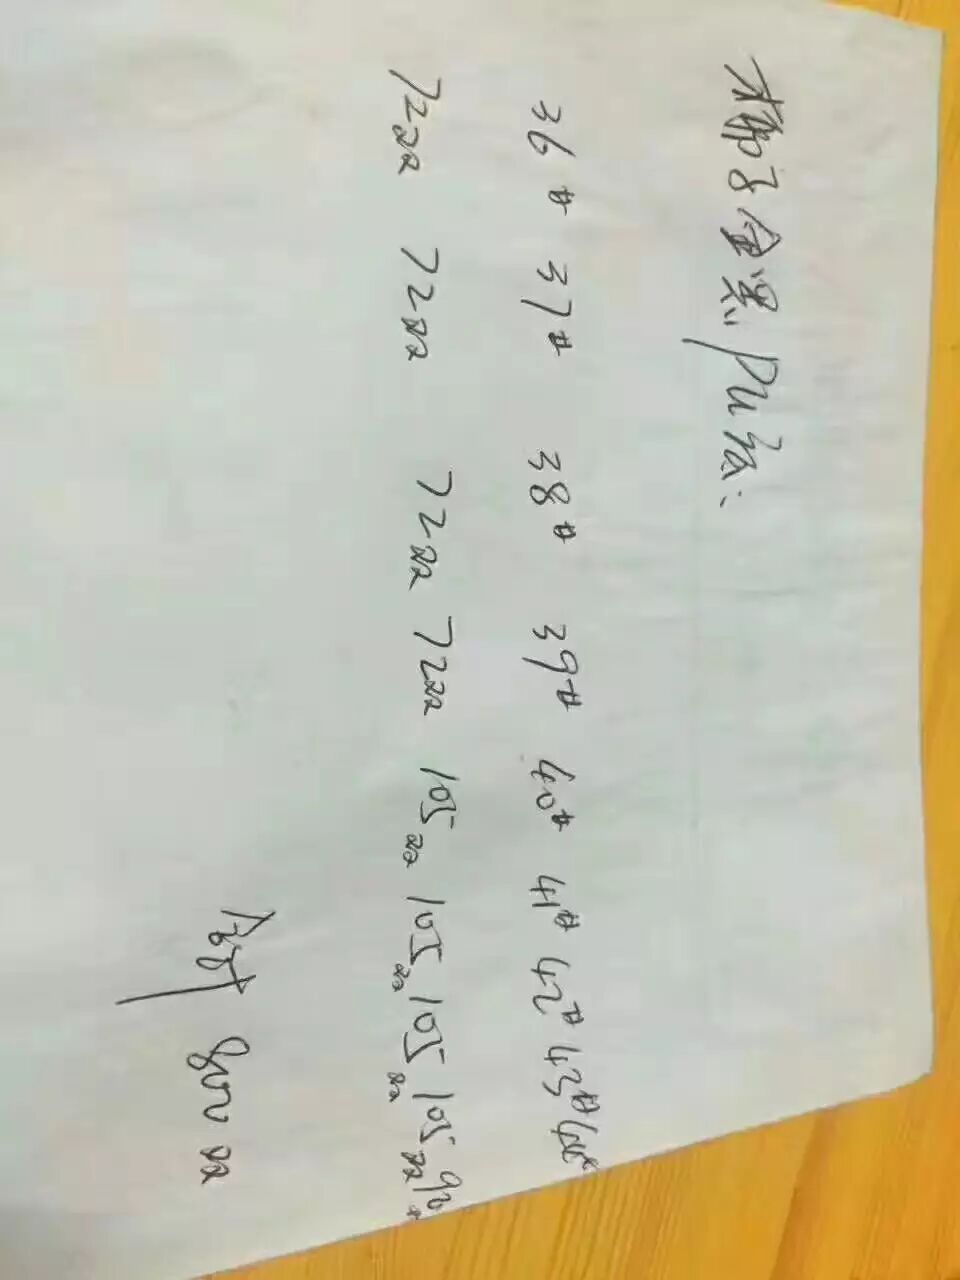 子全黑PU
36# 37# 38# 39# 40# 41# 42# 43# 44#
72双 72双 72双 72双 105双 105双 105双 105双 90双
800双